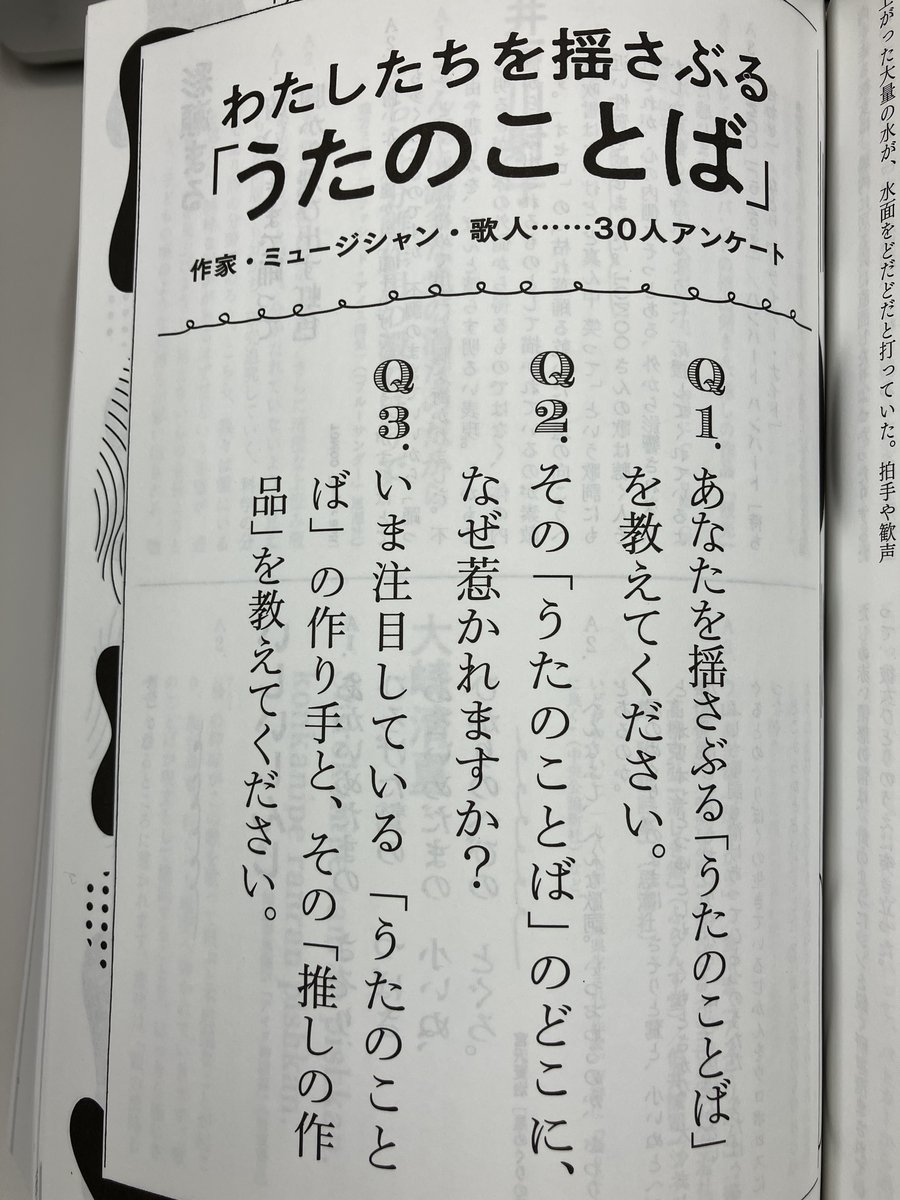 わたしたちを揺さぶる
「うたのことば」
作家・ミュージシャン・歌人……30人アンケート
Q1. あなたを揺さぶる「うたのことば」
を教えてください。
Q2. その「うたのことば」のどこに、
なぜ惹かれますか?
Q3. いま注目している「うたのこと
ば」の作り手と、その「推しの作
品」を教えてください。
上がった大量の水が、水面をどだどだと打っていた。拍手や歓声